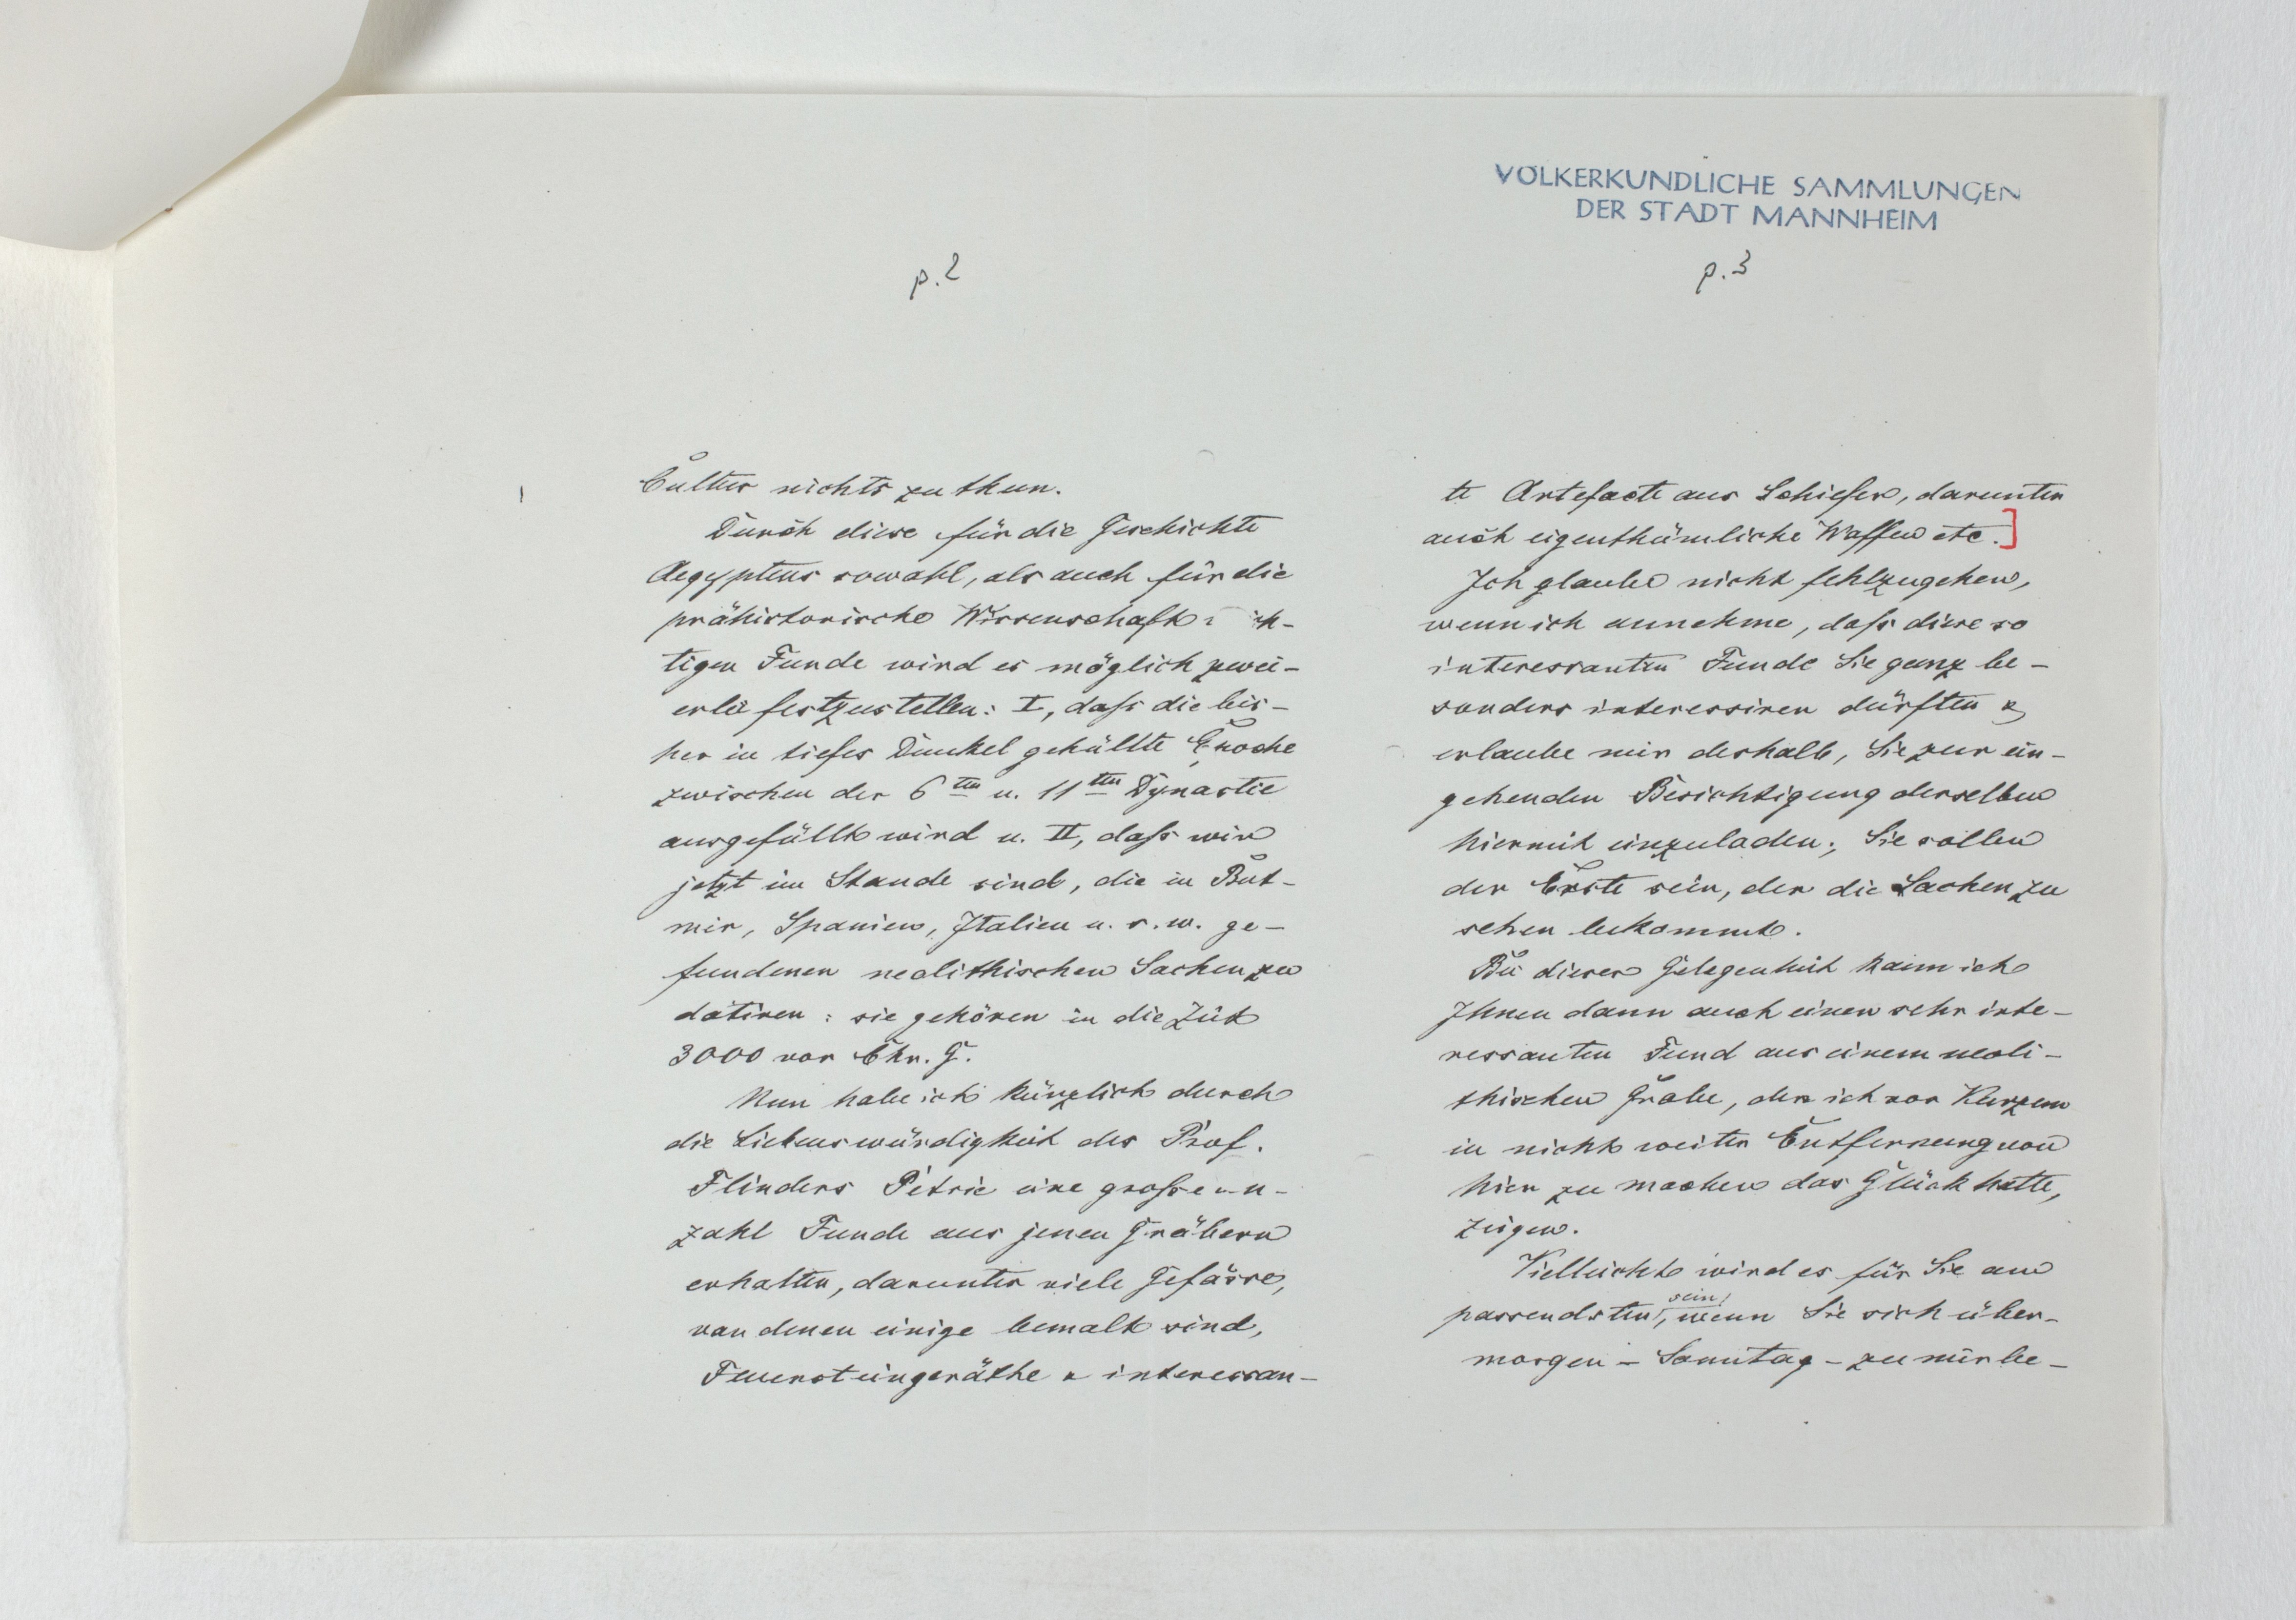 p. 2
Cultur nichts zu thun.
Durch diese für die Geschichte
Aegyptens sowohl, als auch für die
prähistorische Wissenschaft ich-
tigen Funde wird es möglich zwei-
erlei festzustellen: I, dass die bis-
her in tiefes Dunkel gehüllte Epoche
zwischen der 6ten u. 11ten Dynastie
ausgefüllt wird u. II, dass wir
jetzt im Stande sind, die in But-
mir, Spanien, Italien u. s. w. ge-
fundenen neolithischen Sachen zu
datiren: sie gehören in die Zeit
3000 vor Chr. G.
Nun habe ich kürzlich durch
die Liebenswürdigkeit des Prof.
Flinders Petrie eine grosse An-
zahl Funde aus jenen Gräbern
erhalten, darunter viele Gefässe,
von denen einige bemalt sind,
Feuersteingeräthe & interessan-
VÖLKERKUNDLICHE SAMMLUNGEN
DER STADT MANNHEIM
p. 3
te Artefacte aus Schiefer, darunter
auch eigenthümliche Waffen etc.]
Ich glaube nicht fehlzugehen,
wenn ich annehme, dass diese so
interessanten Funde Sie ganz be-
sonders interessiren dürften &
erlaube mir deshalb, Sie zur ein-
gehenden Besichtigung derselben
hiermit einzuladen; Sie sollen
der Erste sein, der die Sachen zu
sehen bekommt.
Bei dieser Gelegenheit kann ich
Ihnen dann auch einen sehr inte-
ressanten Fund aus einem neoli-
thischen Grabe, den ich vor Kurzem
in nicht weiter Entfernung von
hier zu machen das Glück hatte,
zeigen.
Vielleicht wird es für Sie am
passendsten sein, wenn Sie sich über-
morgen - Sonntag - zu mir be-